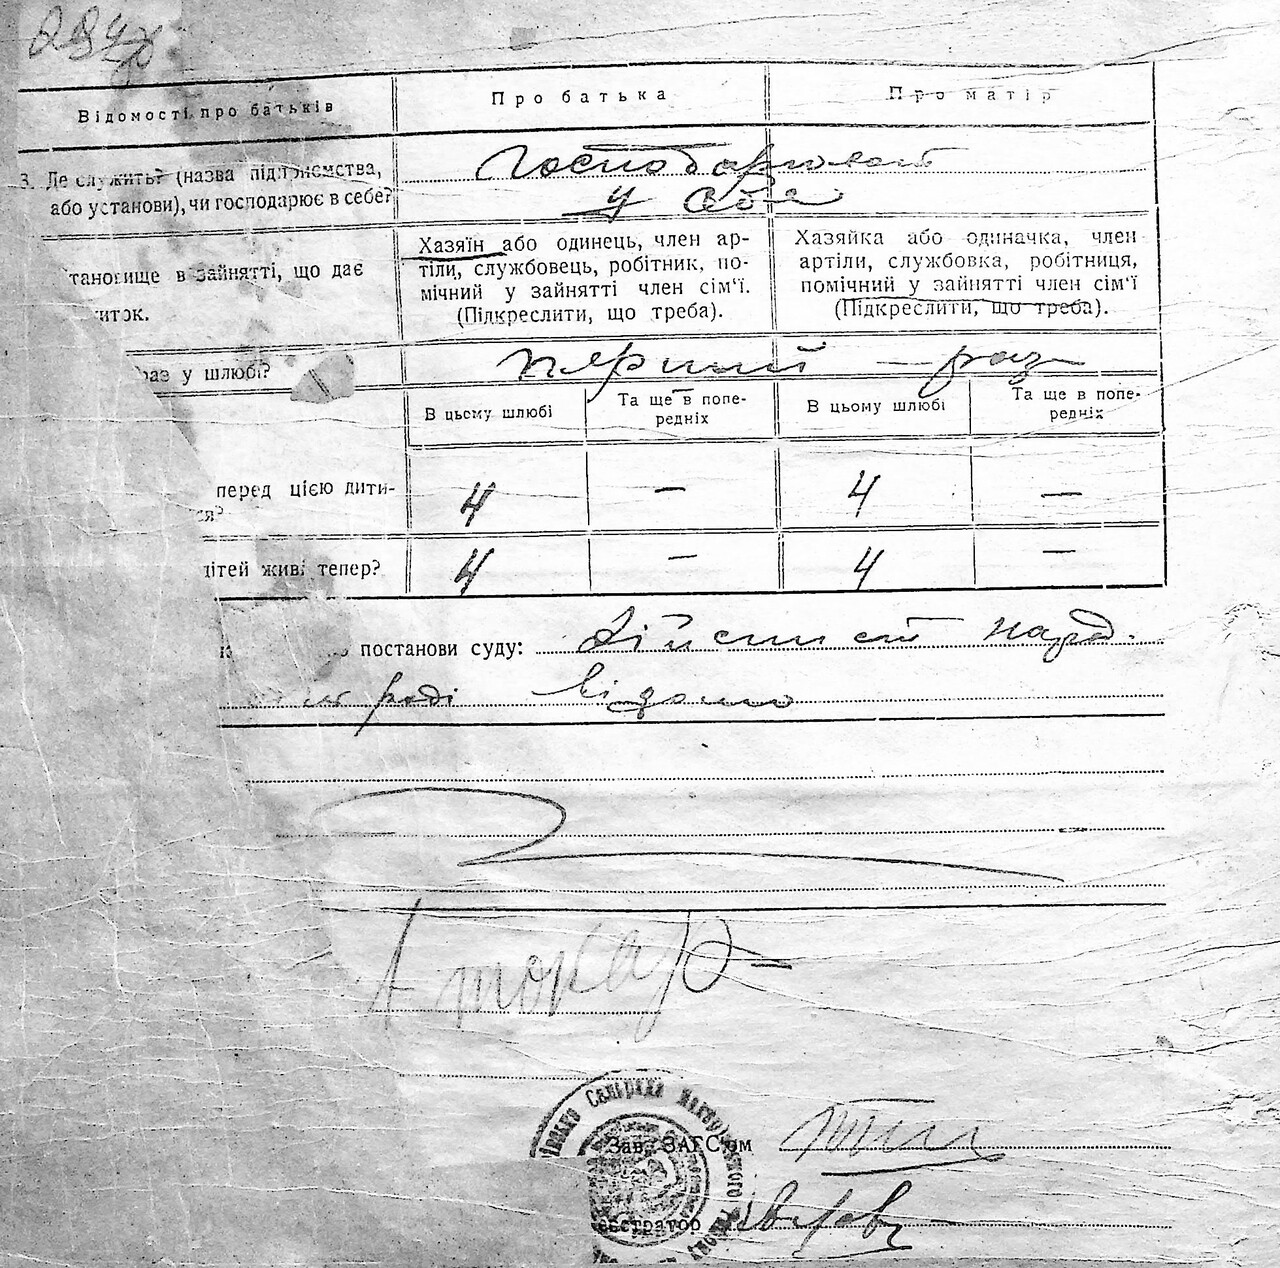 Відомості про батьків
Про батька
Про матір
3. Де служить? (назва підприємства,
або установи), чи господарює в себе?
Господарюють
у себе
тановище в зайнятті, що дає
иток.
Хазяїн або одинець, член ар-
тіли, службовець, робітник, по-
мічний у зайнятті член сім'ї.
(Підкреслити, що треба).
Хазяйка або одиначка, член
артіли, службовка, робітниця,
помічний у зайнятті член сім'ї
(Підкреслити, що треба).
раз у шлюбі?
перший — раз
В цьому шлюбі
Та ще в попе-
редніх
В цьому шлюбі
Та ще в попе-
редніх
перед цією дити-
ся?
4 — 4 —
ітей живі тепер?
4 — 4 —
постанови суду:
Дійсність народ.
відомо
А токар
Сельрада
Зав. ЗАГС'ом
еєстратор